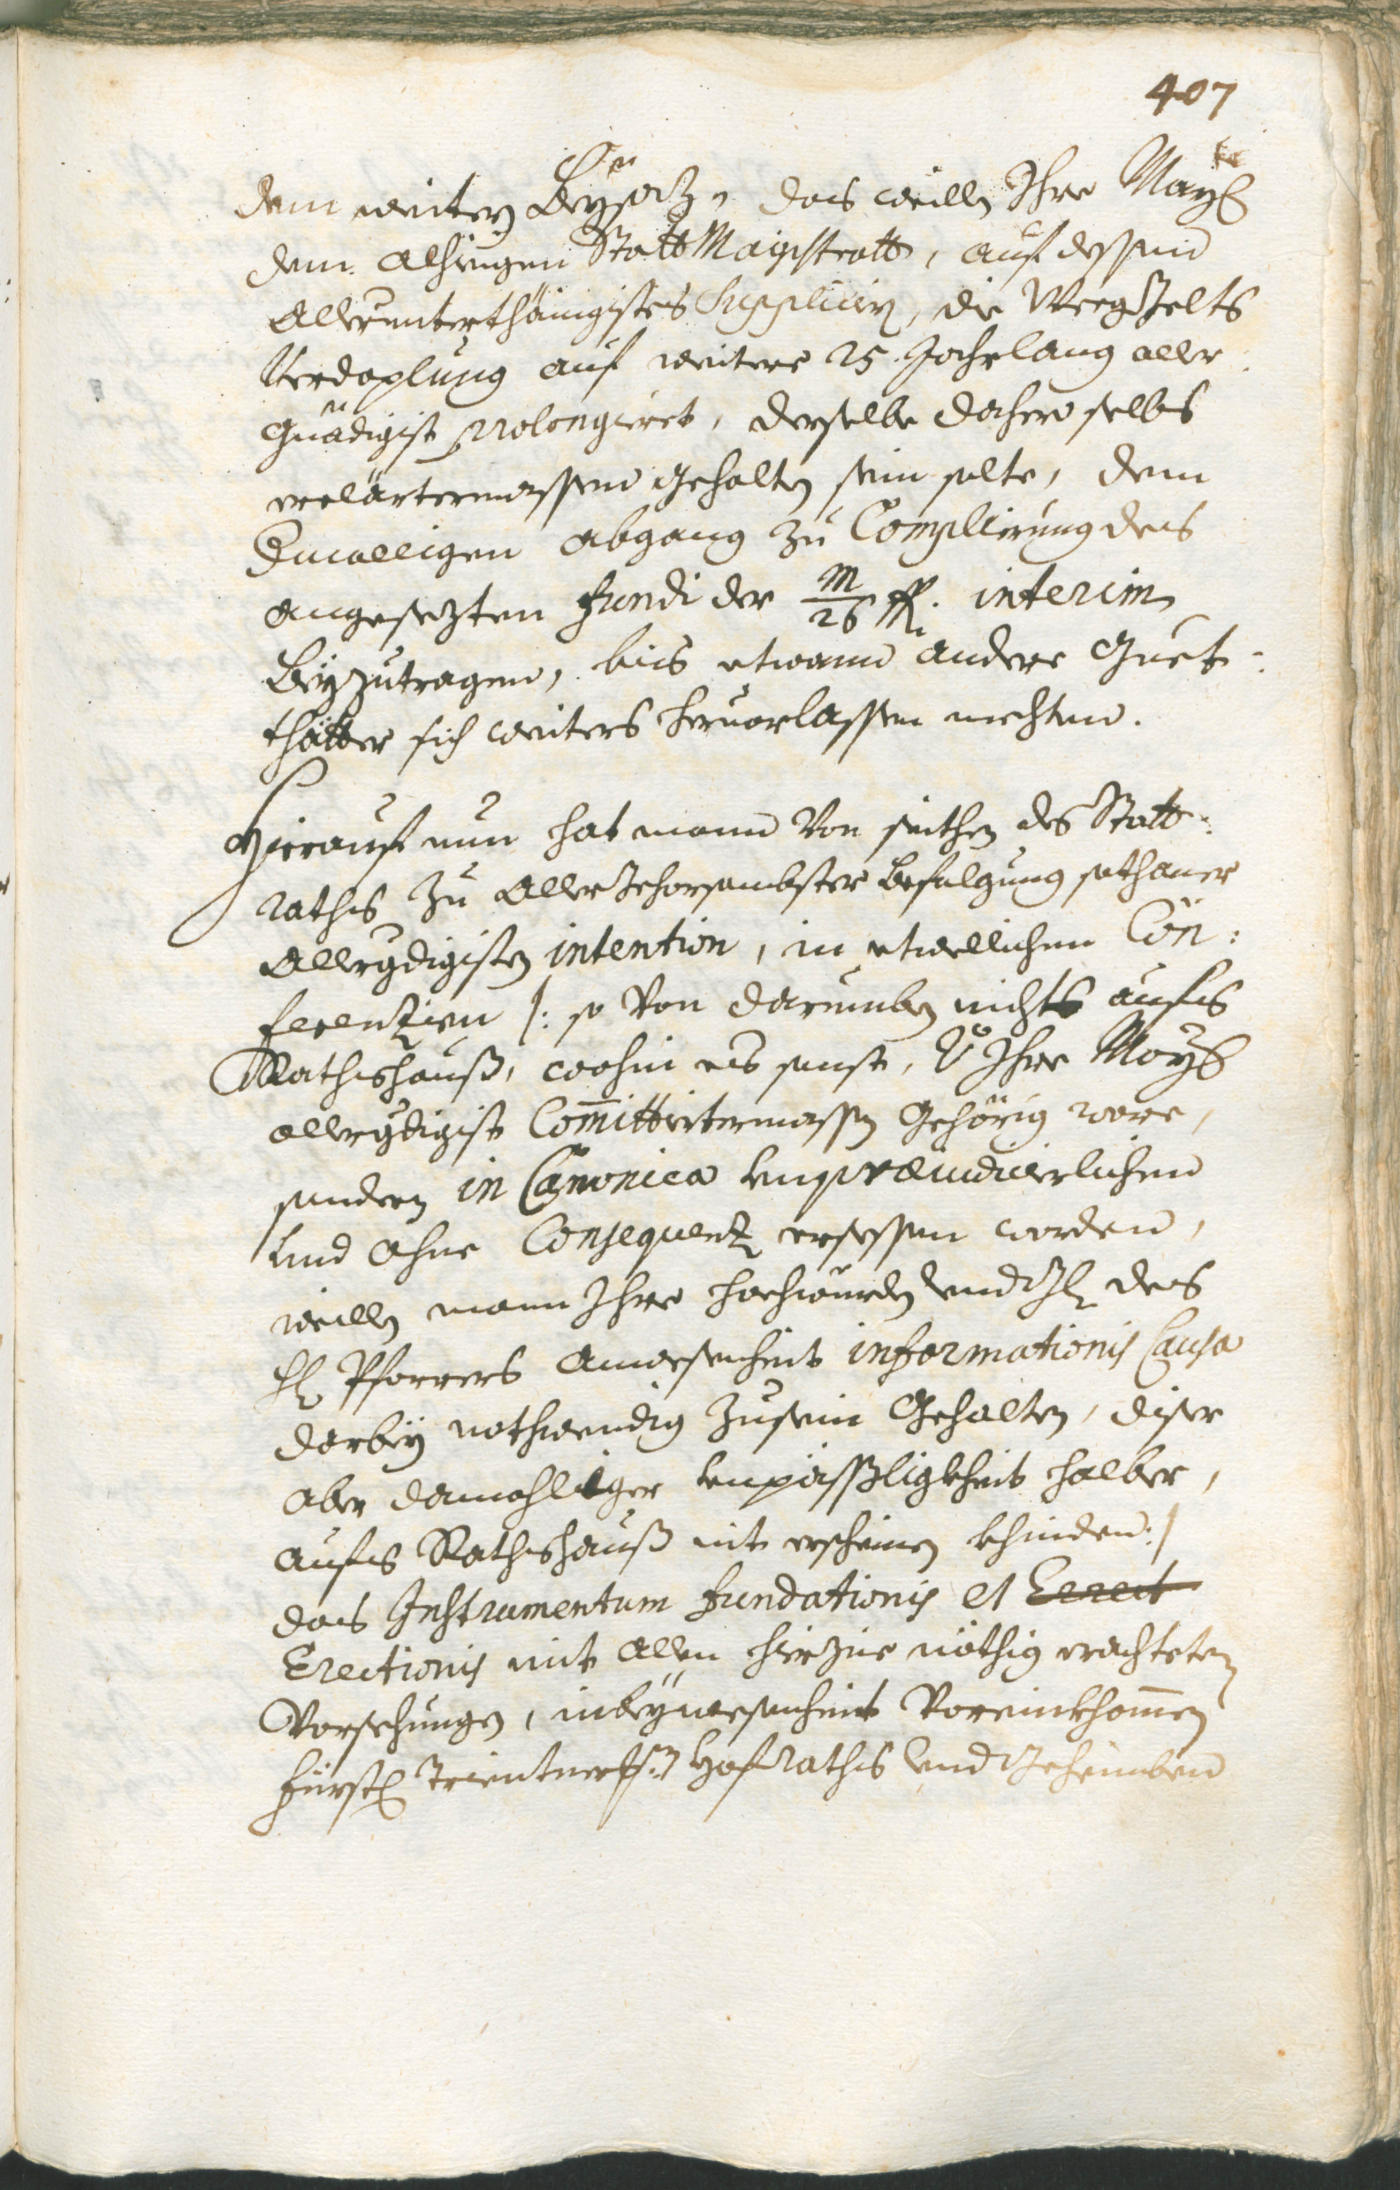 407
dem weitern Beysatz, das weilln Ihre Mayt
dem alhiegen Statt Magistratt, auf dessen
Allerunterthänigistes Supplicirn, die Weeg Zelts
Verdoplung auf weitere 25. Jahr lang aller
Gnädigist prolongieret, derselbe dahero selbs
erclärtermassen gehalten sein solte, dem
Emalligen abgang zu Complierung des
angesezten fundi der M/26 fl. interim
Beyzutragen, bis etwann andere Guet-
thätter sich weiters hervorlassen mechten.
Hierauf nun hat mann Von seithen des Statt-
raths zu Aller Gehorsambster Befolgung sothaner
Allergdigisten intention, in etwellichen Con:
ferentzien /: so Von darumben nichts aufs
Rathshauß, wohin es sonst, Ihre Mayt
allergdigist Committiertermassen Gehörig ware,
sondern in Canonica unpraeiudicierlichen
und ohne Consequentz ersessen worden,
weilln mann Ihre Hochwürden und Gl des
Hl Pfarrers Anwesenheit informationis Causa
darbey nothwendig zusein Gehalten, diser
aber damahliger unpäßligkheit halber,
aufs Rathshauß nit erscheinen khinden :/
das Instrumentum fundationis et Erect
Erectionis mit allen hierzue nöthig erachteten
Vorsehungen, in beywesenheit Voreinkhomen
fürstl Trientnerisch Hof Raths und Geheimben